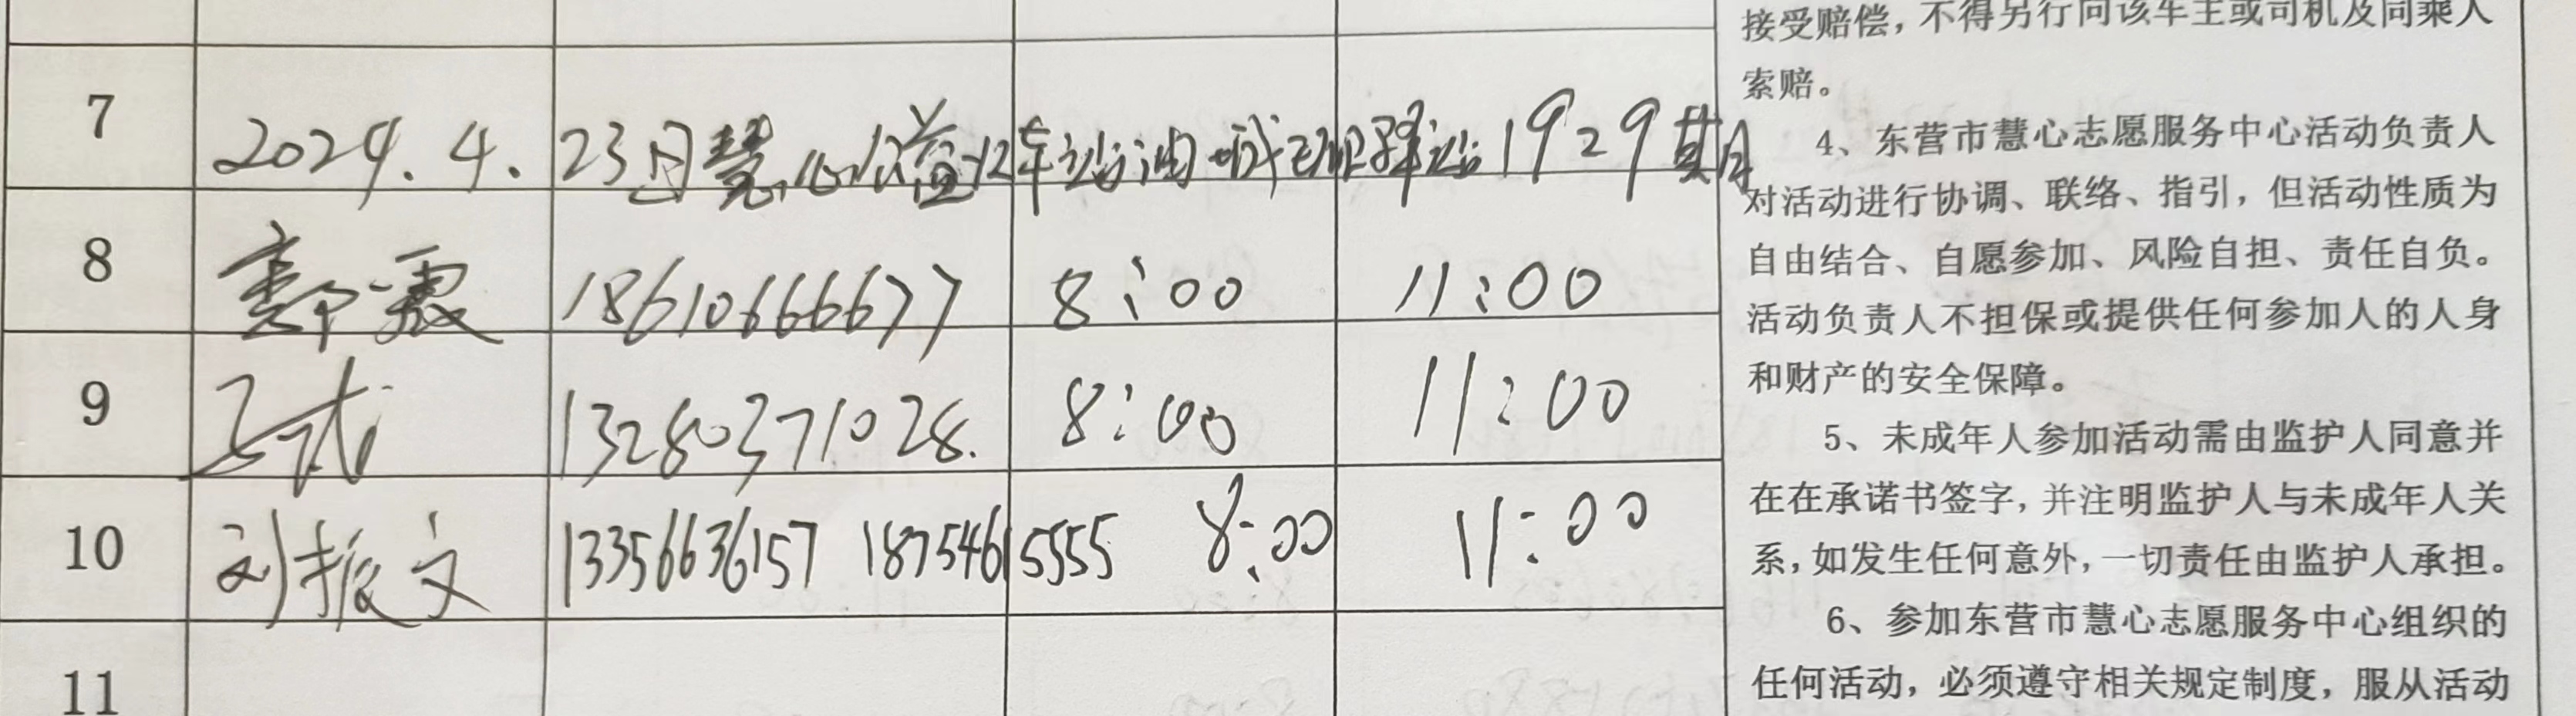 7 2024.4.23日慧心公益 1929期
8 霞 18610666677 8:00 11:00
9 13280371028. 8:00 11:00
10 刘振文 13356636157 18754615555 8:00 11:00
11
接受赔偿，不得另行向该车主或司机及同乘人
索赔。
4、东营市慧心志愿服务中心活动负责人
对活动进行协调、联络、指引，但活动性质为
自由结合、自愿参加、风险自担、责任自负。
活动负责人不担保或提供任何参加人的人身
和财产的安全保障。
5、未成年人参加活动需由监护人同意并
在在承诺书签字，并注明监护人与未成年人关
系，如发生任何意外，一切责任由监护人承担。
6、参加东营市慧心志愿服务中心组织的
任何活动，必须遵守相关规定制度，服从活动